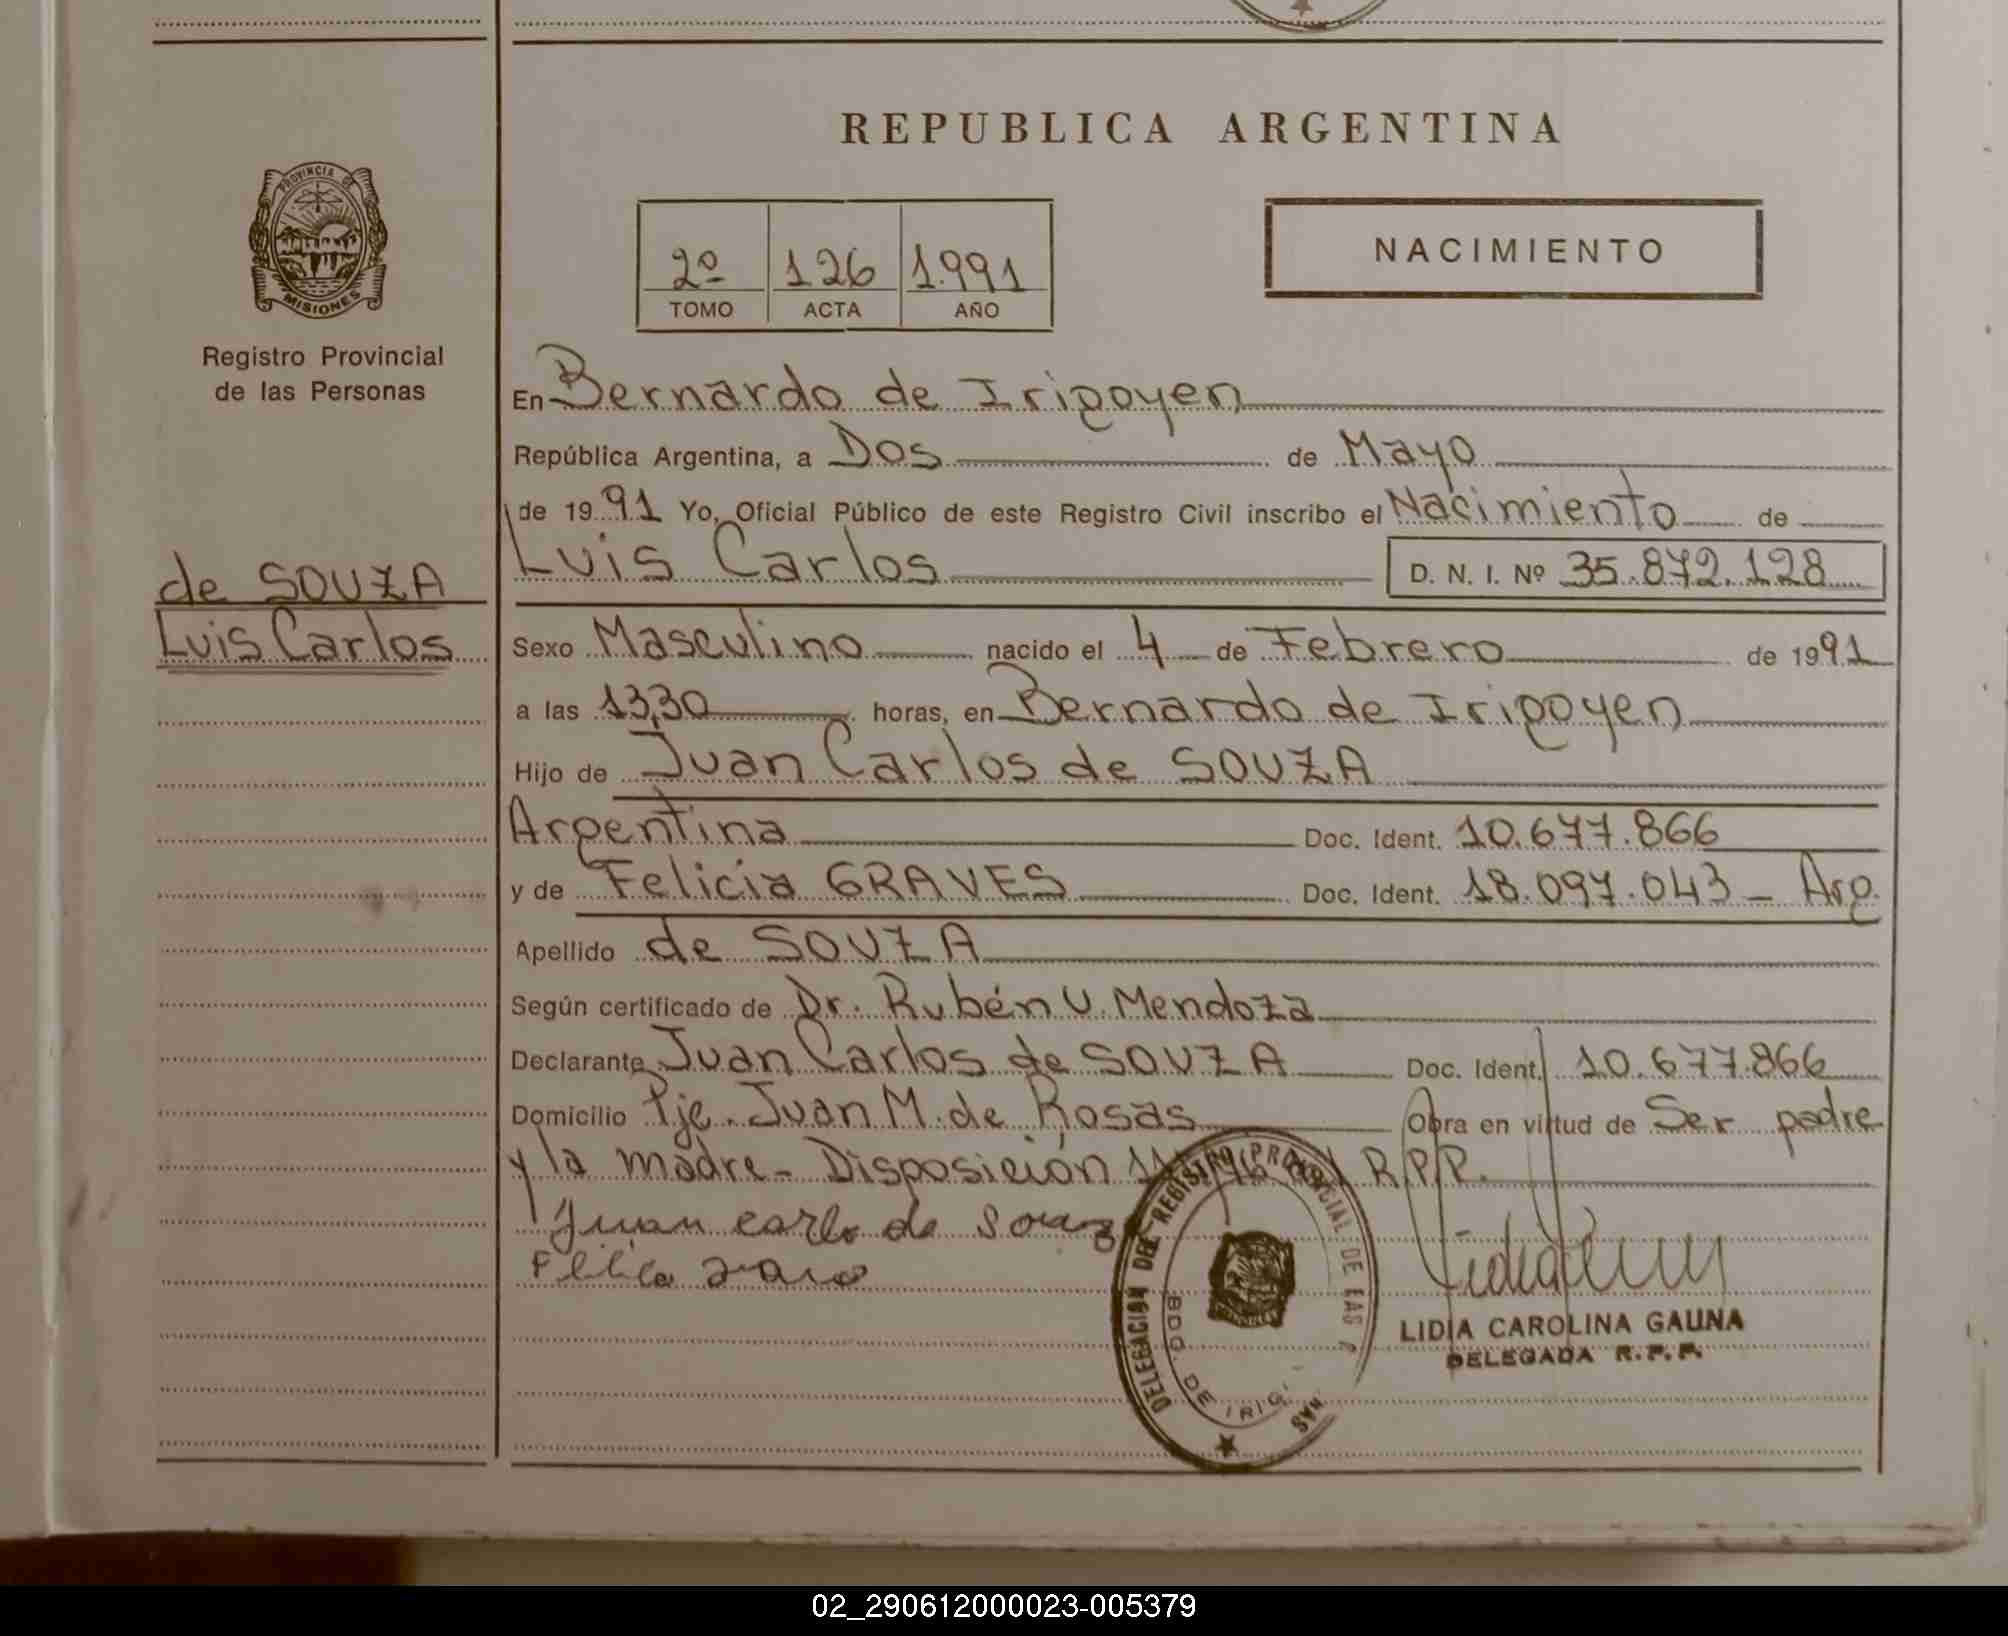 REPUBLICA ARGENTINA
PROVINCIA DE
MISIONES
Registro Provincial
de las Personas
2º 126 1.991
TOMO ACTA AÑO
NACIMIENTO
de SOUZA
Luis Carlos
En Bernardo de Irigoyen
República Argentina, a Dos de Mayo
de 1991 Yo, Oficial Público de este Registro Civil inscribo el Nacimiento de
Luis Carlos D. N. I. Nº 35.872.128
Sexo Masculino nacido el 4 de Febrero de 1991
a las 13,30 horas, en Bernardo de Irigoyen
Hijo de Juan Carlos de SOUZA
Argentina Doc. Ident. 10.677.866
y de Felicia GRAVES Doc. Ident. 18.097.043 - Arg.
Apellido de SOUZA
Según certificado de Dr. Rubén V. Mendoza
Declarante Juan Carlos de SOUZA Doc. Ident. 10.677.866
Domicilio Pje. Juan M. de Rosas Obra en virtud de Ser padre
y la madre - Disposición R.P.P.
Juan carlo de Souza
DELEGACION DEL REGISTRO PROVINCIAL DE LAS
BDO. DE IRIG
LIDIA CAROLINA GAUNA
DELEGADA R.P.P.
02_290612000023-005379